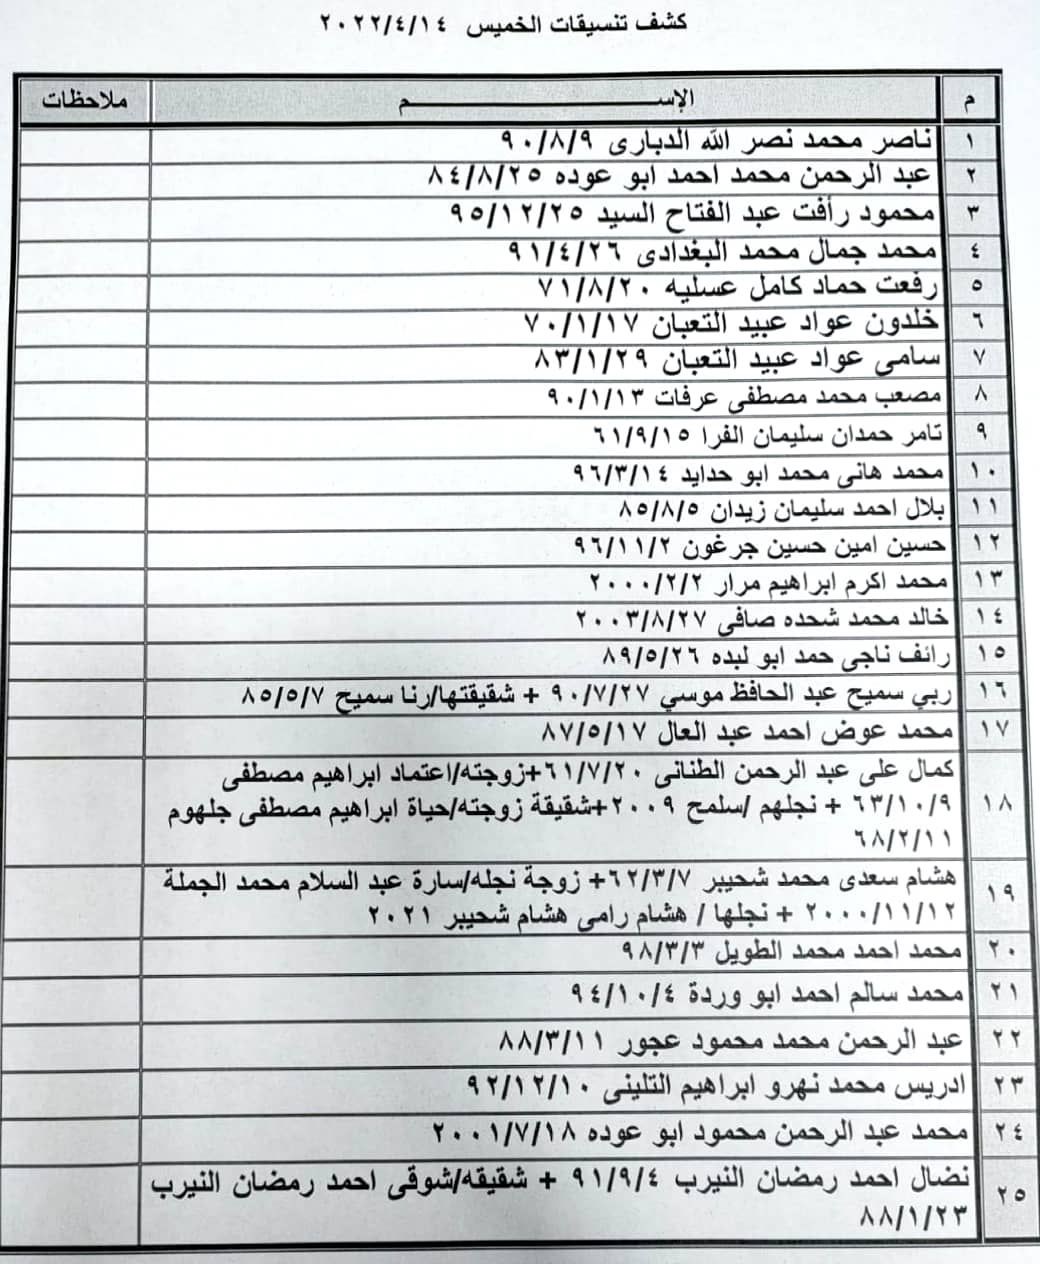 كشف تنسيقات الخميس ٢٠٢٢/٤/١٤
م الإســـــــــم ملاحظات
١ ناصر محمد نصر الله الدبارى ٩٠/٨/٩
٢ عبد الرحمن محمد احمد ابو عوده ٨٤/٨/٢٥
٣ محمود رأفت عبد الفتاح السيد ٩٥/١٢/٢٥
٤ محمد جمال محمد البغدادى ٩١/٤/٢٦
٥ رفعت حماد كامل عسليه ٧١/٨/٢٠
٦ خلدون عواد عبيد التعبان ٧٠/١/١٧
٧ سامى عواد عبيد التعبان ٨٣/١/٢٩
٨ مصعب محمد مصطفى عرفات ٩٠/١/١٣
٩ تامر حمدان سليمان الفرا ٦١/٩/١٥
١٠ محمد هانى محمد ابو حدايد ٩٦/٣/١٤
١١ بلال احمد سليمان زيدان ٨٥/٨/٥
١٢ حسين امين حسين جرغون ٩٦/١١/٢
١٣ محمد اكرم ابراهيم مرار ٢٠٠٠/٢/٢
١٤ خالد محمد شحده صافى ٢٠٠٣/٨/٢٧
١٥ رائف ناجى حمد ابو لبده ٨٩/٥/٢٦
١٦ ربي سميح عبد الحافظ موسي ٩٠/٧/٢٧ + شقيقتها/رنا سميح ٨٥/٥/٧
١٧ محمد عوض احمد عبد العال ٨٧/٥/١٧
١٨ كمال على عبد الرحمن الطنانى ٦١/٧/٢٠+زوجته/اعتماد ابراهيم مصطفى
٦٣/١٠/٩ + نجلهم /سلمح ٢٠٠٩+شقيقة زوجته/حياة ابراهيم مصطفى جلهوم
٦٨/٢/١١
١٩ هشام سعدى محمد شحيبر ٦٢/٣/٧+ زوجة نجله/سارة عبد السلام محمد الجملة
٢٠٠٠/١١/١٢ + نجلها / هشام رامى هشام شحيبر ٢٠٢١
٢٠ محمد احمد محمد الطويل ٩٨/٣/٣
٢١ محمد سالم احمد ابو وردة ٩٤/١٠/٤
٢٢ عبد الرحمن محمد محمود عجور ٨٨/٣/١١
٢٣ ادريس محمد نهرو ابراهيم التلينى ٩٢/١٢/١٠
٢٤ محمد عبد الرحمن محمود ابو عوده ٢٠٠١/٧/١٨
٢٥ نضال احمد رمضان النيرب ٩١/٩/٤ + شقيقه/شوقى احمد رمضان النيرب
٨٨/١/٢٣